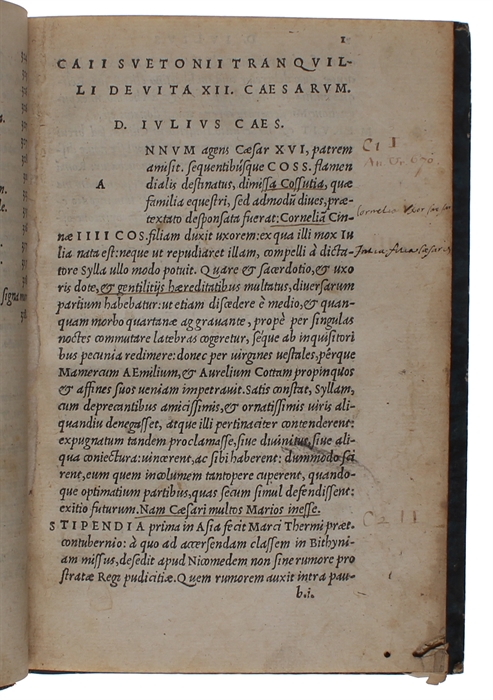 1
CAII SVETONII TRANQVIL-
LI DE VITA XII. CAESARVM.
D. IVLIVS CAES.
A NNVM agens Cæsar XVI, patrem
amisit. sequentibúsque COSS. flamen
dialis destinatus, dimissa Cossutia, quæ
familia equestri, sed admodũ diues, præ-
textato desponsata fuerat: Corneliã Cin-
næ IIII COS. filiam duxit uxorem: ex qua illi mox Iu
lia nata est: neque ut repudiaret illam, compelli à dicta-
tore Sylla ullo modo potuit. Quare & sacerdotio, & uxo
ris dote, & gentilitijs hæreditatibus multatus, diuersarum
partium habebatur: ut etiam discedere è medio, & quan-
quam morbo quartanæ aggrauante, propè per singulas
noctes commutare latebras cogeretur, séque ab inquisitori
bus pecunia redimere: donec per uirgines uestales, pérque
Mamercum AEmilium, & Aurelium Cottam propinquos
& affines suos ueniam impetrauit. Satis constat, Syllam,
cum deprecantibus amicissimis, & ornatissimis uiris ali-
quandiu denegasset, atque illi pertinaciter contenderent:
expugnatum tandem proclamasse, siue diuinitus, siue ali-
qua coniectura: uincerent, ac sibi haberent: dummodo sci
rent, eum quem incolumem tantopere cuperent, quando-
que optimatium partibus, quas secum simul defendissent:
exitio futurum. Nam Cæsari multos Marios inesse.
STIPENDIA prima in Asia fecit Marci Thermi præt.
contubernio: à quo ad accersendam classem in Bithyni-
am missus, desedit apud Nicomedem non sine rumore pro
stratæ Regi pudicitiæ. Quem rumorem auxit intra pau-
b.i.
C 1 I
C 2 II